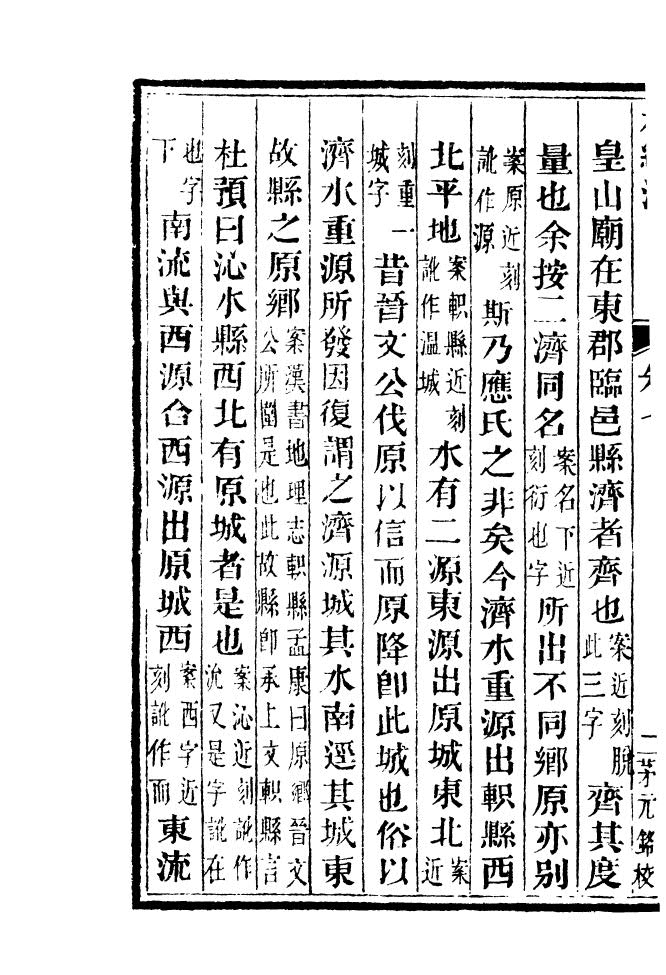 二 茅元銘校
皇山廟在東郡臨邑縣濟者齊也案近刻脫此三字齊其度
量也余按二濟同名案名下近刻衍也字所出不同鄉原亦別
案原近刻訛作源斯乃應氏之非矣今濟水重源出軹縣西
北平地案軹縣近刻訛作溫城水有二源東源出原城東北案近
刻重一城字昔晉文公伐原以信而原降卽此城也俗以
濟水重源所發因復謂之濟源城其水南逕其城東
故縣之原鄉案漢書地理志軹縣孟康曰原鄉晉文公所圍是也此故縣卽承上文軹縣言
杜預曰沁水縣西北有原城者是也案沁近刻訛作沇又是字訛在
也字下南流與西源合西源出原城西案西字近刻訛作而東流